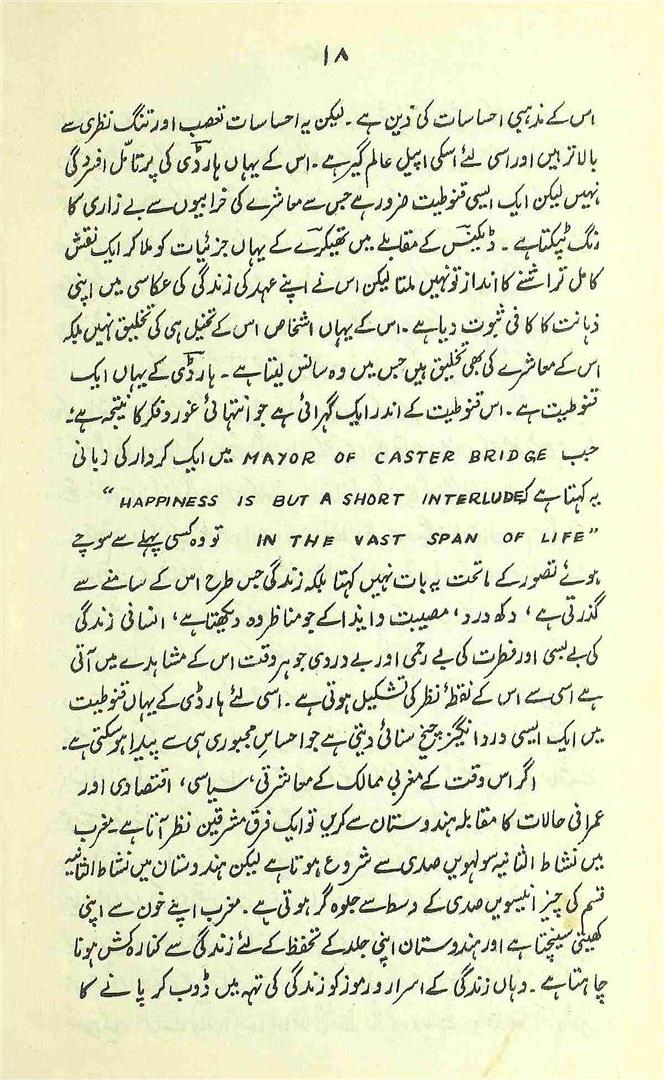 ۱۸
اس کے مذہبی احساسات کی دَین ہے ۔ لیکن یہ احساسات تعصب اور تنگ نظری سے
بالاتر ہیں اور اسی لئے اسکی اپیل عالم گیر ہے ۔ اس کے یہاں ہارڈی کی پرتامّل افسردگی
نہیں لیکن ایک ایسی قنوطیت ضرور ہے جس سے معاشرے کی خرابیوں سے بے زاری کا
رنگ ٹپکتا ہے ۔ ڈیکنس کے مقابلے میں تھیکرے کے یہاں جزئیات کو ملا کر ایک نقش
کامل تراشنے کا انداز تو نہیں ملتا لیکن اس نے اپنے عہد کی زندگی کی عکاسی میں اپنی
ذہانت کا کافی ثبوت دیا ہے ۔ اس کے یہاں اشخاص اس کے تخیل ہی کی تخلیق نہیں بلکہ
اس کے معاشرے کی بھی تخلیق ہیں جس میں وہ سانس لیتا ہے ۔ ہارڈی کے یہاں ایک
قنوطیت ہے ۔ اس قنوطیت کے اندر ایک گہرائی ہے جو انتہائی غور و فکر کا نتیجہ ہے ۔
جب MAYOR OF CASTER BRIDGE میں ایک کردار کی زبانی
یہ کہتا ہے کہ "HAPPINESS IS BUT A SHORT INTERLUDE
IN THE VAST SPAN OF LIFE" تو وہ کسی پہلے سے سوچے
ہوئے تصور کے ماتحت یہ بات نہیں کہتا بلکہ زندگی جس طرح اس کے سامنے سے
گذرتی ہے ، دکھ درد ، مصیبت و ایذا کے جو مناظر وہ دیکھتا ہے ، انسانی زندگی
کی بے بسی اور فطرت کی بے رحمی اور بے دردی جو ہر وقت اس کے مشاہدے میں آتی
ہے اسی سے اس کے نقطۂ نظر کی تشکیل ہوتی ہے ۔ اسی لئے ہارڈی کے یہاں قنوطیت
میں ایک ایسی درد انگیز چیخ سنائی دیتی ہے جو احساسِ مجبوری ہی سے پیدا ہو سکتی ہے ۔
اگر اس وقت کے مغربی ممالک کے معاشرتی ، سیاسی ، اقتصادی اور
عمرانی حالات کا مقابلہ ہندوستان سے کریں تو ایک فرق مشرقین نظر آتا ہے ۔ مغرب
میں نشاط الثانیہ سولہویں صدی سے شروع ہوتا ہے لیکن ہندوستان میں نشاط الثانیہ
قسم کی چیز انیسویں صدی کے وسط سے جلوہ گر ہوتی ہے ۔ مغرب اپنے خون سے اپنی
کھیتی سینچتا ہے اور ہندوستان اپنی جلد کے تحفظ کے لئے زندگی سے کنارہ کش ہونا
چاہتا ہے ۔ وہاں زندگی کے اسرار و رموز کو زندگی کی تہہ میں ڈوب کر پانے کا